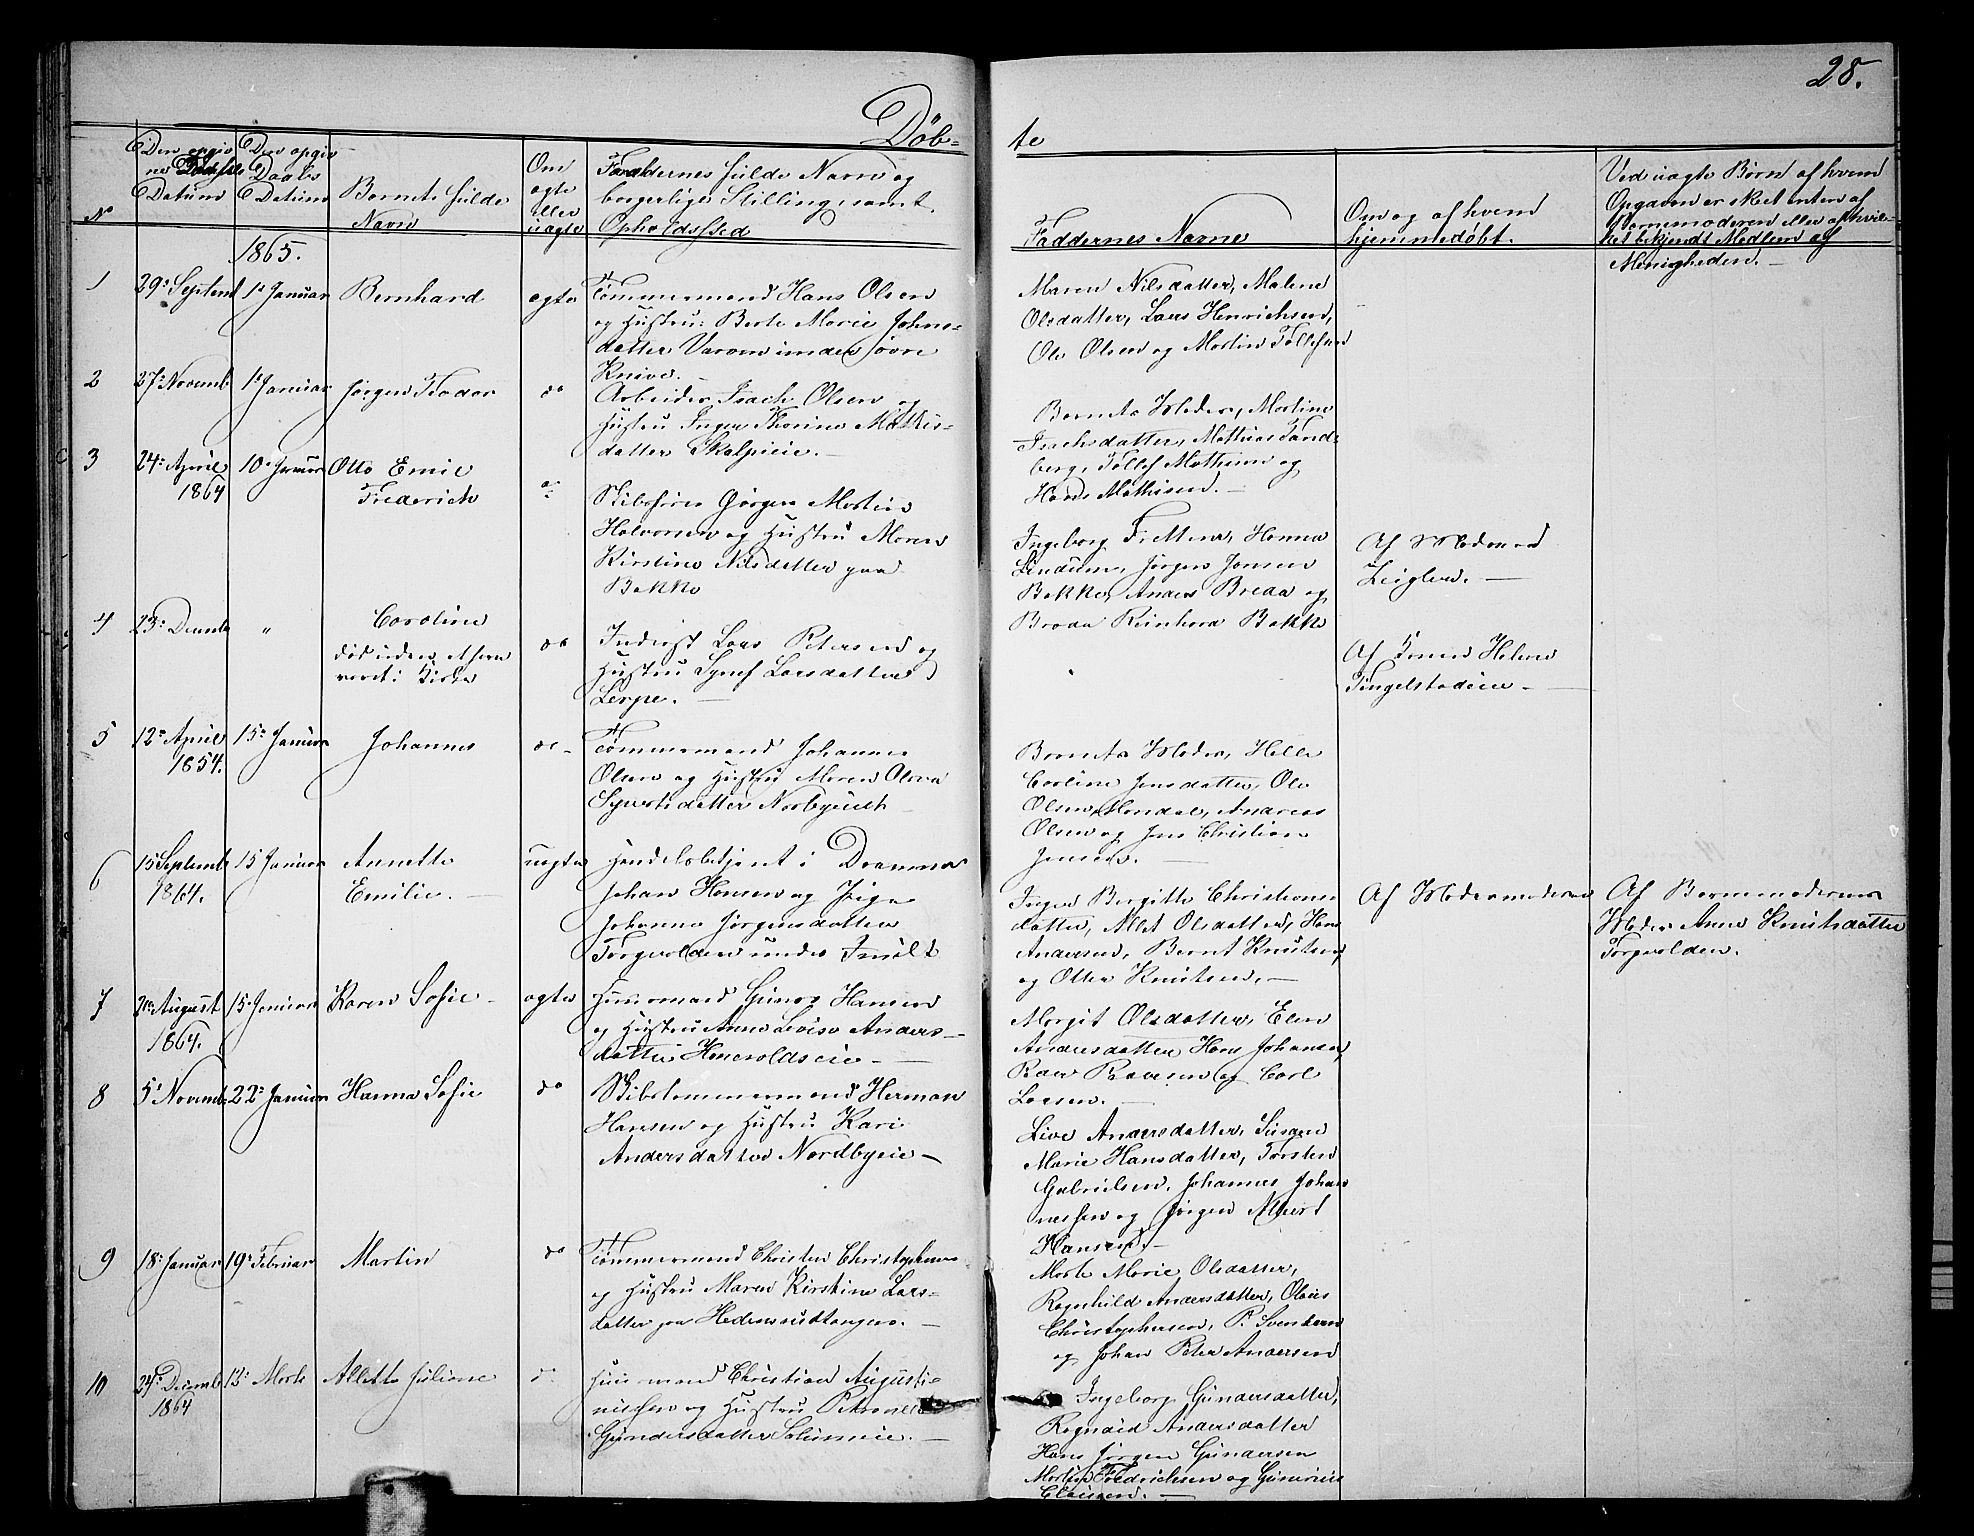 28.
Döb-
te
No
Den opgiv
ne Fødsels
Datum
Den opgiv
Daabs
Datum
Barnets fulde
Navn
Om
ægte
eller
uægte
Forældrenes fulde Navn og
borgerlige Stilling, samt
Opholdssted
Faddernes Navne
Om og af hvem
hjemmedøbt.
Ved uægte Børn af hvem
Opgaven er skeet enten af
Barnemoderen eller af hvil-
ket bekjendt Medlem af
Menigheden. -
1865.
1
29: Septemb
1: Januar
Bernhard
ægte
Tømmermand Hans Olsen
og Hustru: Berte Marie Johns-
datter under jøvre
Knive. -
Maren Nilsdatter, Malene
Olsdatter, Lars Henrichsen,
Ole Olsen og Martin Tollefsen
2
27: Novemb
1: Januar
Jørgen Teodor
do
Arbeider Isach Olsen og
Hustru Inger Thorine Mathis-
datter Skalpieie. -
Barnets Moder, Martine
Isachsdatter, Mathias Tand-
berg, Tollef Mathisen og
Hans Mathisen. -
3
24: April
1864
10: Januar
Otto Emil
Frederich
do
Skibsfører Jørgen Martin
Halvorsen og Hustru Maren
Kirstine Nilsdatter paa
Bakke
Ingeborg Hanna
Lindum, Jørgen Jonsen
Bakke, Anders Breda og
Reinhard Bakke
Af Madame
Zeigler. -
4
23: Decemb
"
Caroline
død uden at have
været i Kirke
do
Inderst Lars Petersen og
Hustru Larsdatter
Lerpe. -
Af Konen Helene
Tingelstadeie -
5
12: April
1854.
15: Januar
Johannes
do -
Tømmermand Johannes
Olsen og Hustru Maren Olava
Syvertsdatter Norbyeiet -
Barnets Moder, Helle
Carline Jensdatter, Ole
Olsen Mondal, Andreas
Olsen og Jens Christian
Jensen. -
6
15 Septemb
1864.
15 Januar
Annette
Emilie. -
uægte
Handelsbetjent i Drammen
Johan Hansen og Pige
Johanne Jørgensdatter
Torgevolden under Smilt
Inger Bergitte Christians
datter, Allet Olsdatter, Hans
Andersen, Bernt Knutsen,
og Otter Knutsen. -
Af Modermoderen
Af Barnemoderens
Moder Anne Knutsdatter
Torgevolden.
7
August
1864.
15: Januar
Karen Sofie -
ægte
Huusmand Gunar Hansen
og Hustru Anne Lovise Anders-
datter Haneroldseie -
Margit Olsdatter, Elen
Andersdatter Hans Johansen,
Roar Roarsen og Carl
Larsen. -
8
5: Novemb
22: Januar
Hanna Sofie
do
Skibstømmermand Herman
Hansen og Hustru Kari
Andersdatter Nordbyeie -
Live Andersdatter, Susan
Marie Hansdatter, Torsten
Gabrielsen, Johannes Johan
nessen og Jørgen
Hansen. -
9
18: Januar
19: Februar
Martin
do
Tømmermand Christen Christophersen
og Hustru Maren Kirstine Lars-
datter paa Hedensruttangen. -
Marte Marie Olsdatter,
Ragnhild Andersdatter, Olaves
Christophersen, P. Svendsen
og Johan Peter Andersen
10
24: Decemb
1864
13: Marts
Allette Juliane
do
Huusmand Christian Augusti-
nussen og Hustru Petronelle
Gundersdatter Solumeie. -
Ingeborg Gundersdatter,
Rognøld Andersdatter
Hans Jørgen Gundersen
Martin Fredrichsen og Gunerius
Clausen. -